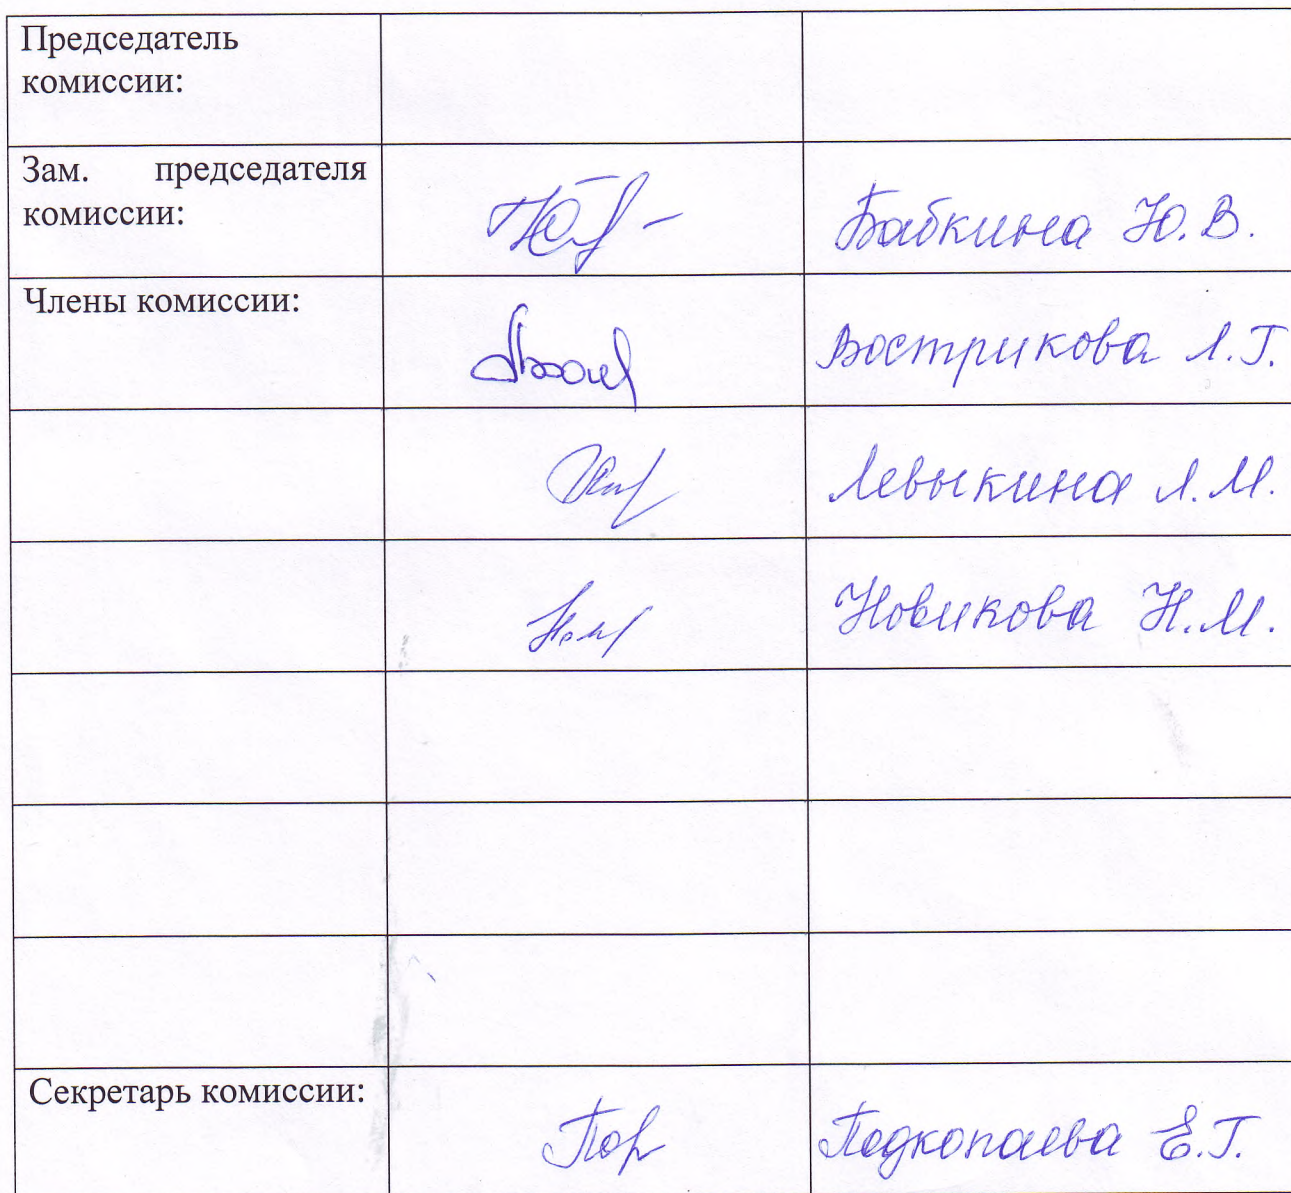 Председатель
комиссии:
Зам. председателя
комиссии:
Бабкина Ю.В.
Члены комиссии:
Вострикова Л.Г.
Левыкина Л.М.
Новикова Н.М.
Секретарь комиссии:
Подкопаева Е.Г.